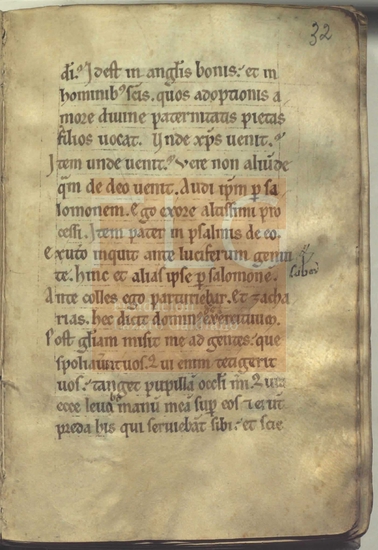 32
di. Idest in anglis bonis. et in
hominib; scis. quos adoptionis a
more divine paternitatis pietas
filios uocat. Unde xps uenit.
Item unde uenit. Vere non aliunde
qm de deo uenit. Audi ipm p sa
lomonem. Ego ex ore altissimi pro
cessi. Item pater in psalmis de eo.
ex utero inquit ante luciferum genui
te. hinc et alias ipse p salomone.
Ante colles ego parturiebar. Et zacha
rias. hec dicit dominus exercituum.
Post gliam misit me ad gentes. que
spoliauerunt uos. Qui enim tetigerit
uos. tanget pupillā occli mi. Quia
ecce leuabo manū meā sup eos et erūt
preda his qui seruiebāt sibi. et scie